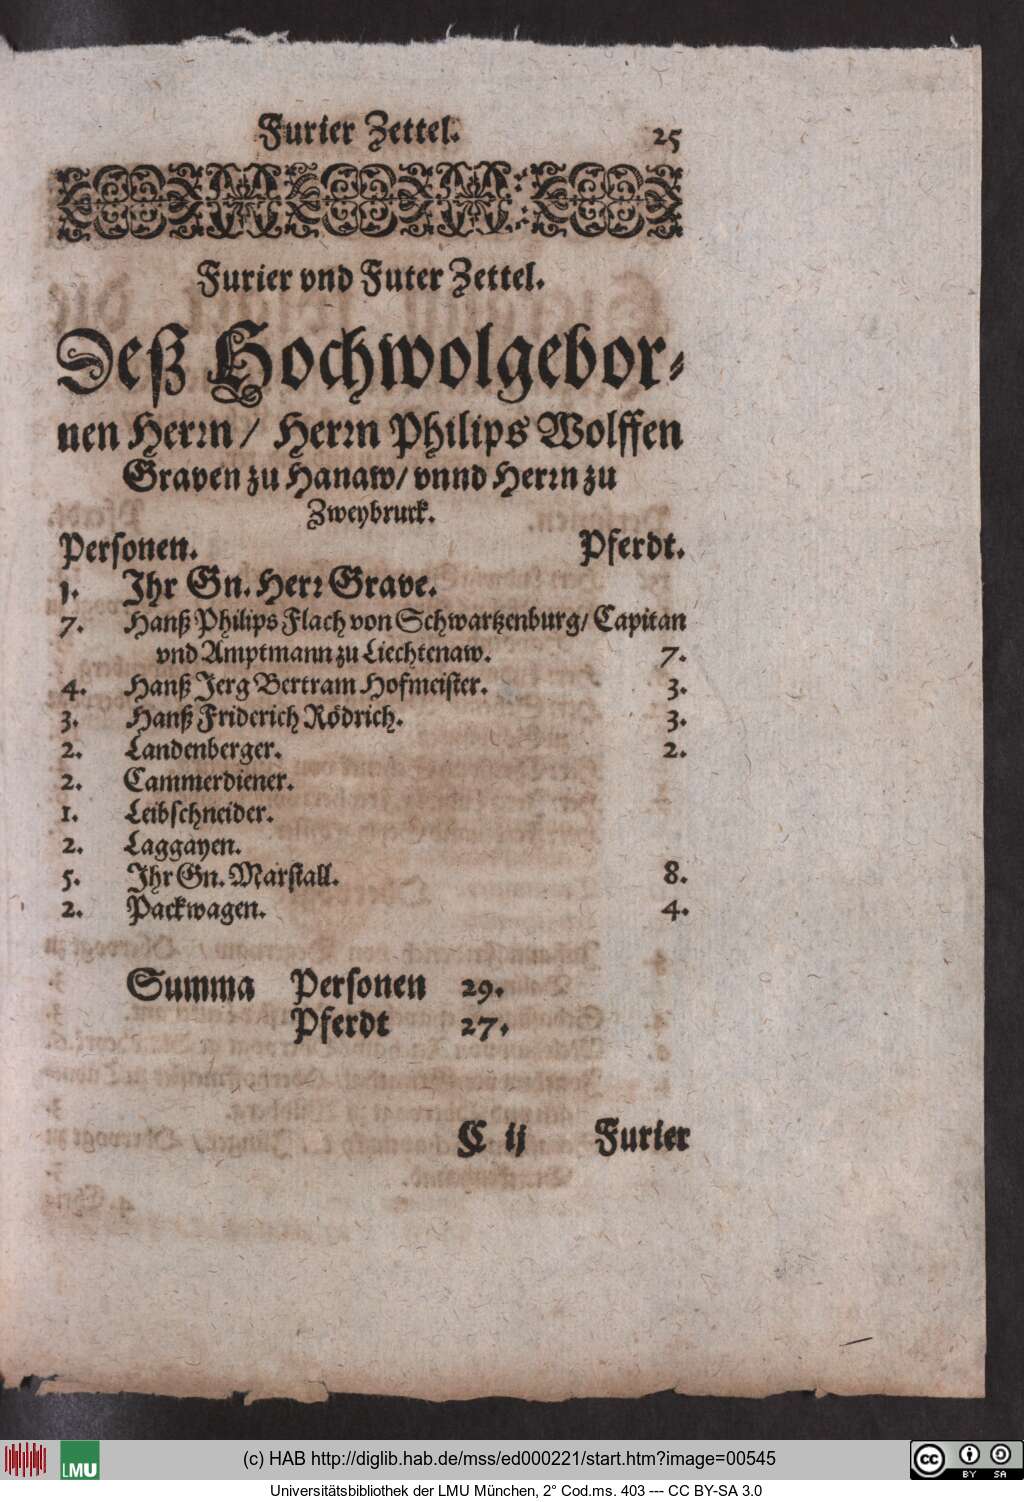 Furier Zettel. 25
Furier vnd Futer Zettel.
Deß Hochwolgebor-
nen Herꝛn / Herꝛn Philips Wolffen
Graven zu Hanaw / vnnd Herꝛn zu
Zweybruck.
Personen. Pferdt.
1. Jhr Gn. Herꝛ Grave.
7. Hanß Philips Flach von Schwartzenburg / Capitan
vnd Amptmann zu Liechtenaw. 7.
4. Hanß Jerg Bertram Hofmeister. 3.
3. Hanß Friderich Rödrich. 3.
2. Landenberger. 2.
2. Cammerdiener.
1. Leibschneider.
2. Laggayen.
5. Jhr Gn. Marstall. 8.
2. Packwagen. 4.
Summa Personen 29.
Pferdt 27.
C ij Furier
LMU
(c) HAB http://diglib.hab.de/mss/ed000221/start.htm?image=00545
cc BY SA
Universitätsbibliothek der LMU München, 2° Cod.ms. 403 --- CC BY-SA 3.0